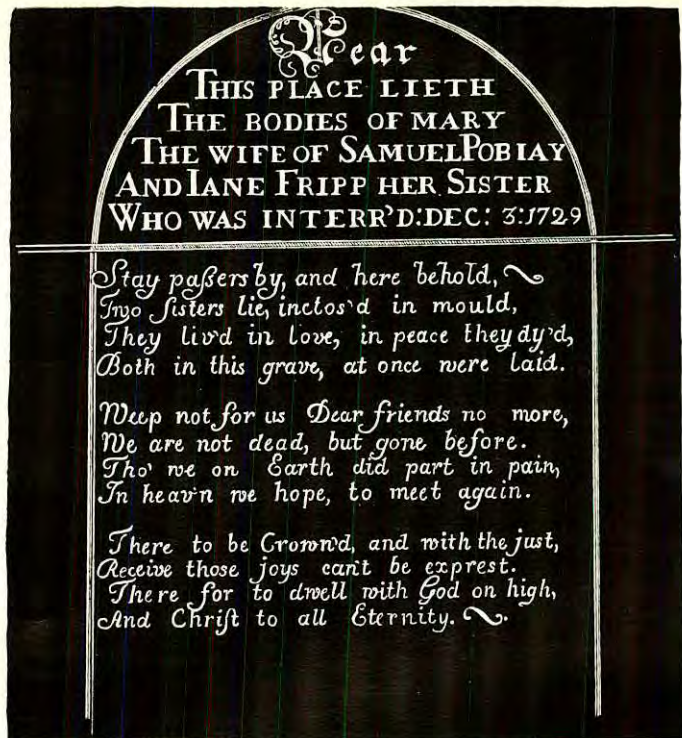 Near
THIS PLACE LIETH
THE BODIES OF MARY
THE WIFE OF SAMUEL POBIAY
AND IANE FRIPP HER SISTER
WHO WAS INTERR'D:DEC: 3:1729
Stay paßers by, and here behold,
Two ſisters lie, inclos'd in mould,
They liv'd in love, in peace they dy'd,
Both in this grave, at once were laid.
Weep not for us Dear friends no more,
We are not dead, but gone before.
Tho' we on Earth did part in pain,
In heav'n we hope, to meet again.
There to be Crown'd, and with the just,
Receive those joys can't be exprest.
There for to dwell with God on high,
And Chriſt to all Eternity.